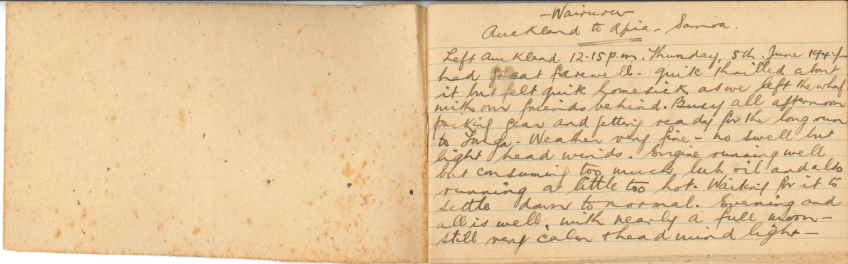 – Wairuru
Auckland to Apia – Samoa.
Left Auckland 12-15 p.m. Thursday, 5th June 194
had great farewell – quite thrilled about
it but felt quite homesick as we left the wharf
with our friends behind. Busy all afternoon
packing gear and getting ready for the long run
to Tonga. Weather very fine – no swell but
light head winds. Engine running well
but consuming too much lub. oil and also
running a little too hot. Waiting for it to
settle down to normal. Evening and
all is well, with nearly a full moon –
still very calm & head wind light –